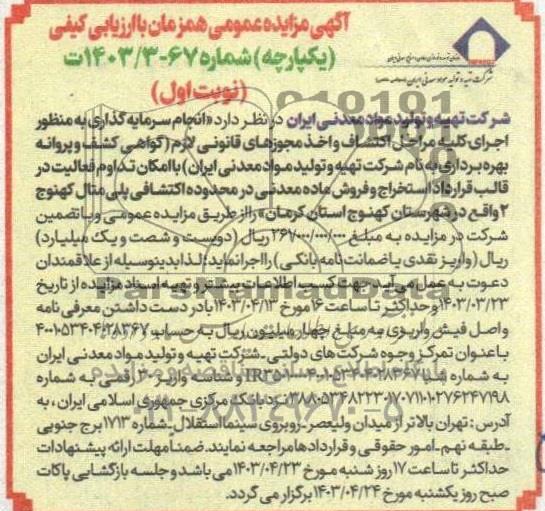 آگهی مزایده عمومی همزمان با ارزیابی کیفی
(یکپارچه) شماره ۶۷-۱۴۰۳/۳ت
(نوبت اول)
شرکت تهیه و تولید مواد معدنی ایران
شرکت تهیه و تولید مواد معدنی ایران در نظر دارد «انجام سرمایه گذاری به منظور
اجرای کلیه مراحل اکتشاف و اخذ مجوزهای قانونی لازم (گواهی کشف و پروانه
بهره برداری به نام شرکت تهیه و تولید مواد معدنی ایران) با امکان تداوم فعالیت در
قالب قرارداد استخراج و فروش ماده معدنی در محدوده اکتشافی پلی متال کهنوج
۲ واقع در شهرستان کهنوج استان کرمان» را از طریق مزایده عمومی و با تضمین
شرکت در مزایده به مبلغ ۲۶۷/۰۰۰/۰۰۰/۰۰۰ ریال (دویست و شصت و یک میلیارد)
ریال (واریز نقدی یا ضمانت نامه بانکی) را اجرا نماید؛ لذا بدینوسیله از علاقمندان
دعوت به عمل می آید، جهت کسب اطلاعات بیشتر و تهیه اسناد مزایده از تاریخ
۱۴۰۳/۰۳/۲۳ و حداکثر تا ساعت ۱۶ مورخ ۱۴۰۳/۰۴/۱۳ با در دست داشتن معرفی نامه
و اصل فیش واریزی به مبلغ چهار میلیون ریال به حساب ۴۰۰۱۰۵۳۴۰۴۰۲۸۳۶۷
با عنوان تمرکز وجوه شرکت های دولتی - شرکت تهیه و تولید مواد معدنی ایران
به شماره شبا و شناسه واریز ۳۰ رقمی به شماره
نزد بانک مرکزی جمهوری اسلامی ایران ، به
آدرس : تهران بالاتر از میدان ولیعصر - روبروی سینما استقلال - شماره ۱۷۱۳ برج جنوبی
- طبقه نهم - امور حقوقی و قراردادها مراجعه نمایند. ضمنا مهلت ارائه پیشنهادات
حداکثر تا ساعت ۱۷ روز شنبه مورخ ۱۴۰۳/۰۴/۲۳ می باشد و جلسه بازگشایی پاکات
صبح روز یکشنبه مورخ ۱۴۰۳/۰۴/۲۴ برگزار می گردد.